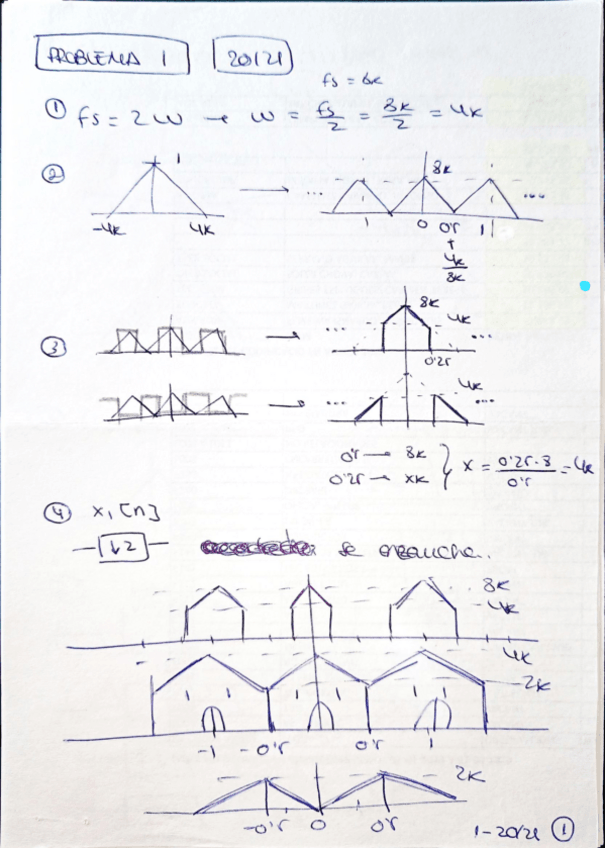 PROBLEMA 1 20/21
fs = 8k
① fs = 2W → W = fs/2 = 8k/2 = 4k
② 1 → ... 8k ...
-4k 4k 1 0 0'5 1
4k/8k
③ → ... 8k 4k ...
0'25
→ ... 4k ...
0'5 → 8k
0'25 → xk } x = 0'25·8/0'5 = 4k
④ x₁[n]
↓2 se ensancha.
8k
4k
4k
2k
-1 -0'5 0'5 1
2k
-0'5 0 0'5
1-20/21 ①